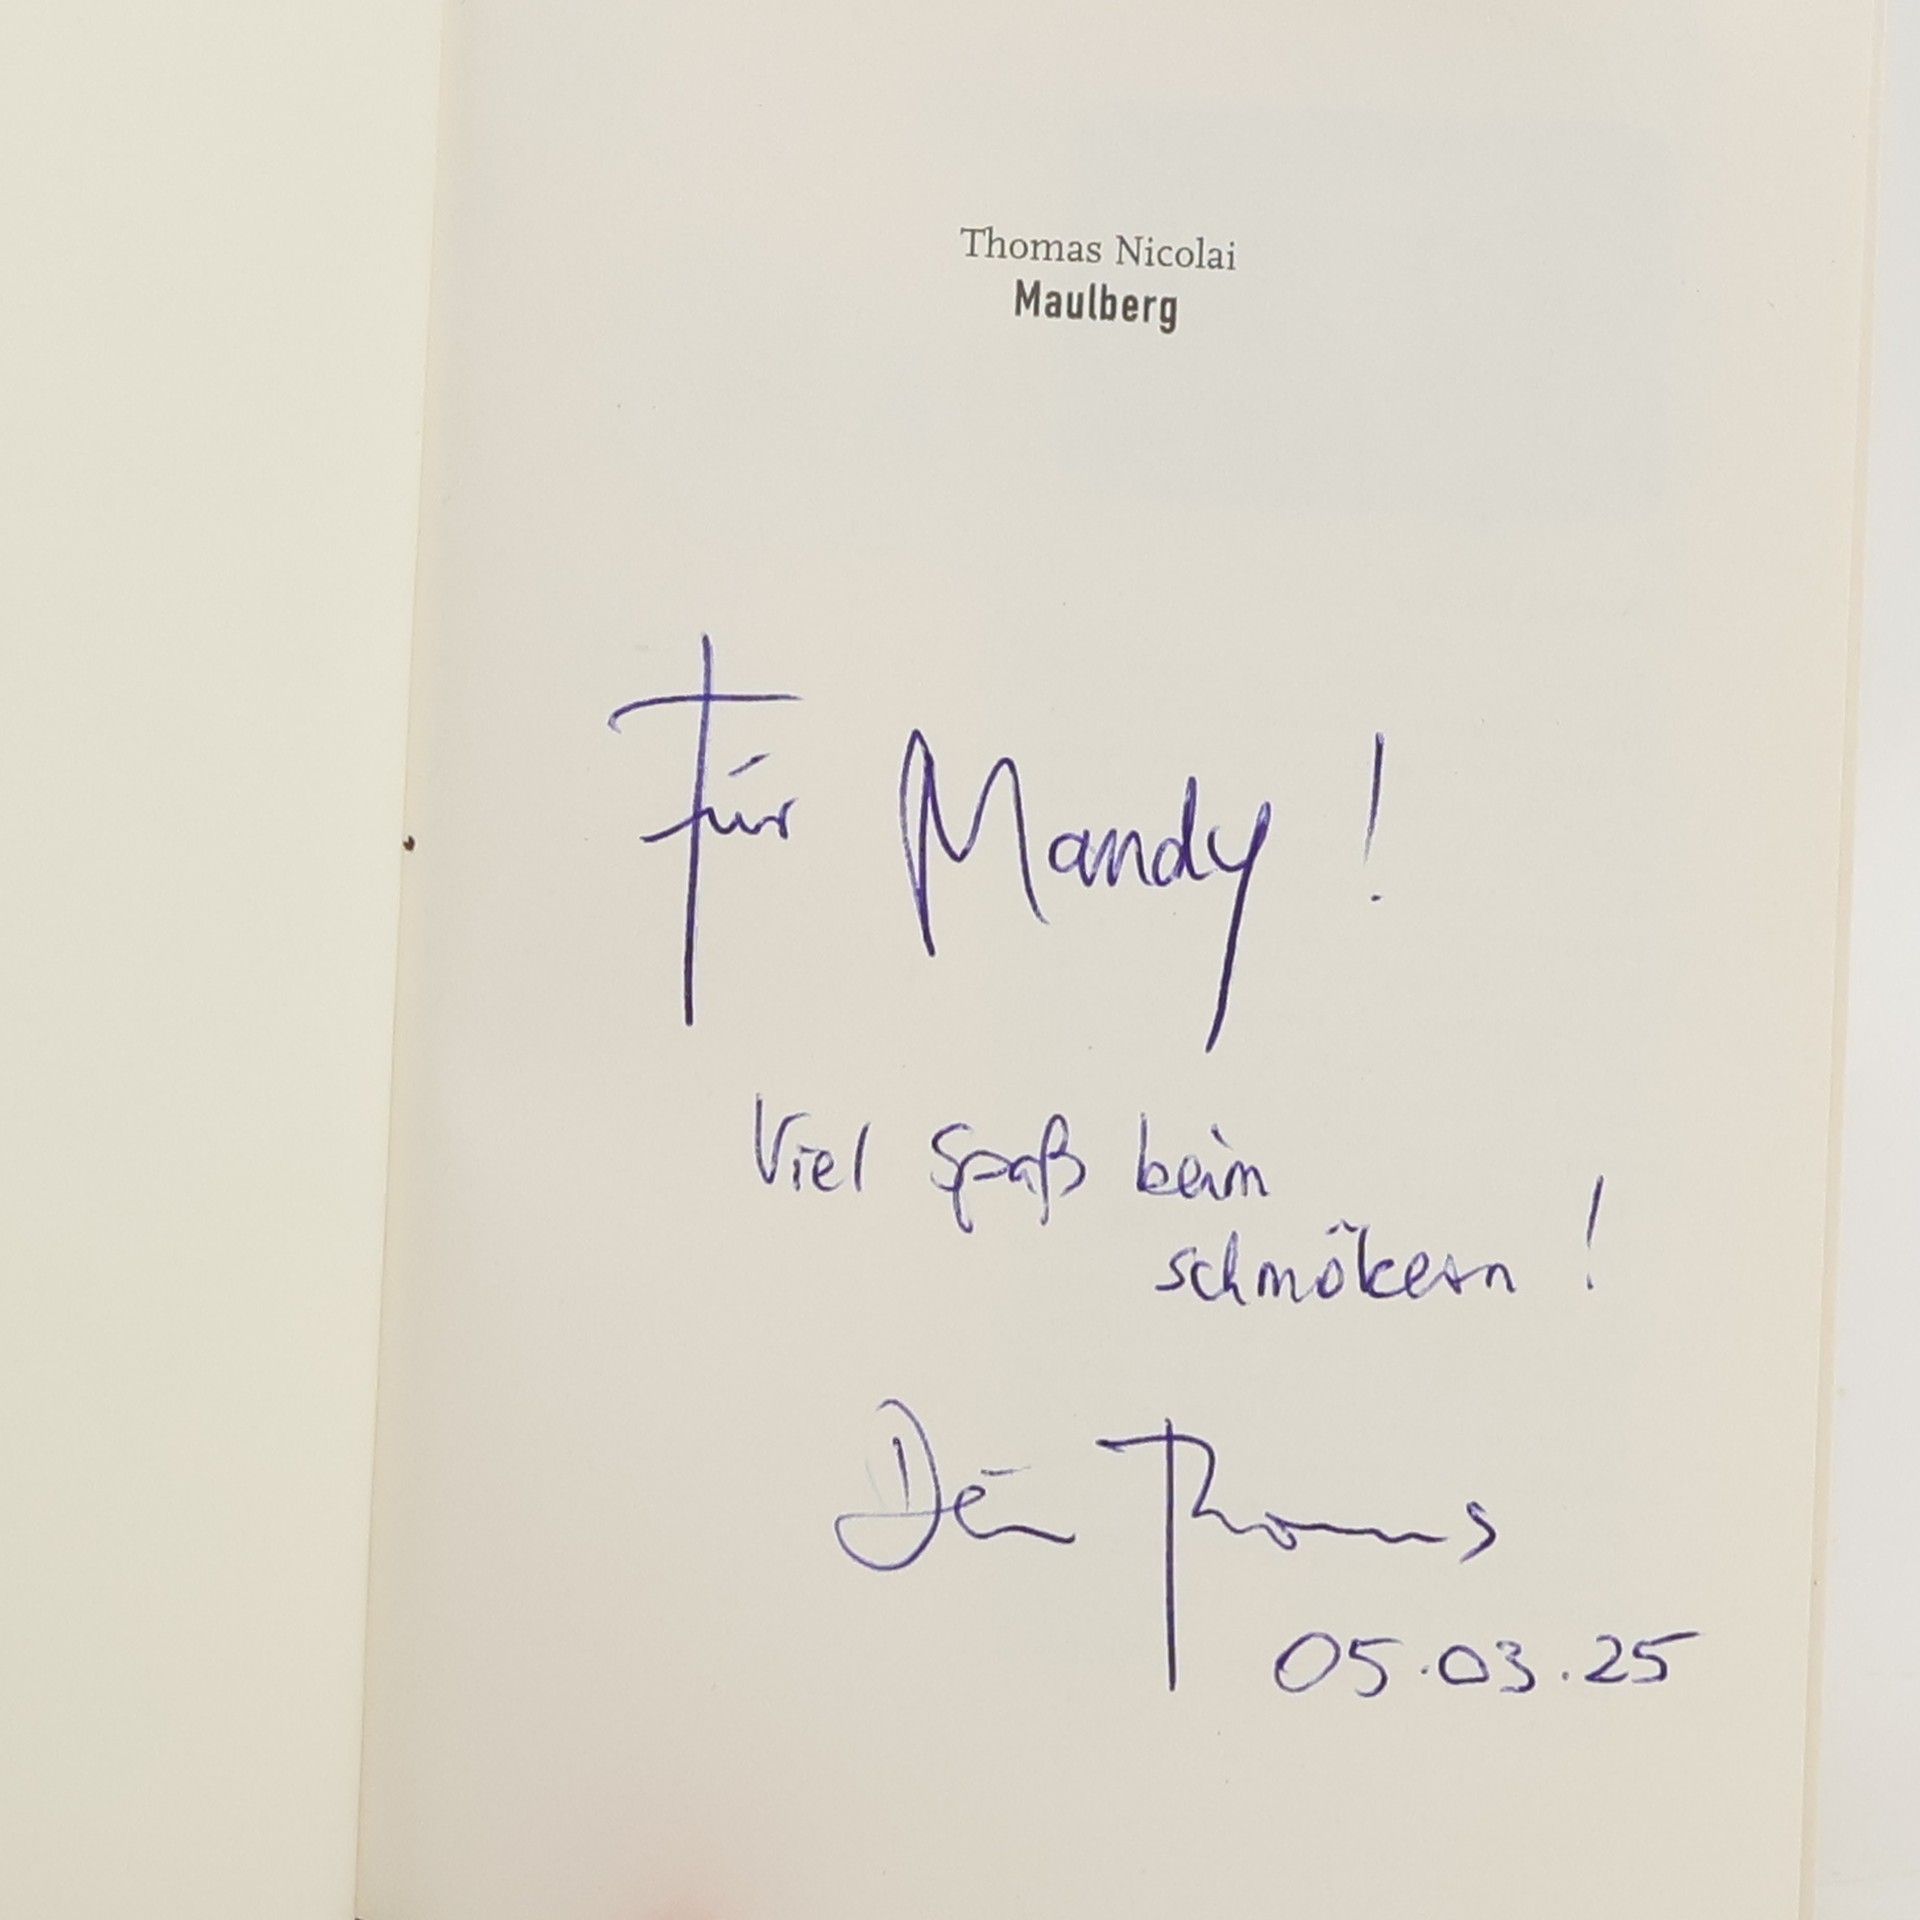 Thomas Nicolai
Maulberg
Für Mandy!
Viel Spaß beim
schmökern!
Dein Thomas
05.03.25